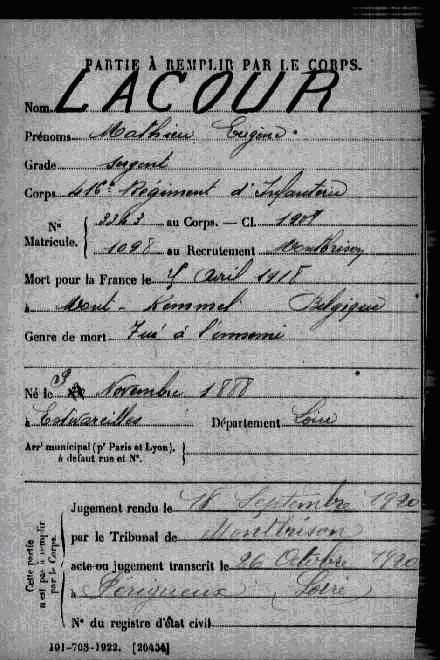 PARTIE À REMPLIR PAR LE CORPS.
Nom LACOUR
Prénoms Mathieu Eugène
Grade sergent
Corps Régiment d'Infanterie
Nos Matricule. 3363 au Corps. — Cl. 1908
1098 au Recrutement Montbrison
Mort pour la France le Avril 1918
à Mont-Kemmel Belgique
Genre de mort Tué à l'ennemi
Né le 9 Novembre 1888
à Estivareilles Département Loire
Arrt municipal (pr Paris et Lyon),
à défaut rue et N°.
Cette partie n'est pas à remplir par le Corps.
Jugement rendu le 18 Septembre 1920
par le Tribunal de Montbrison
acte ou jugement transcrit le 26 Octobre 1920
à Loire
N° du registre d'état civil
101-708-1922. [26434]